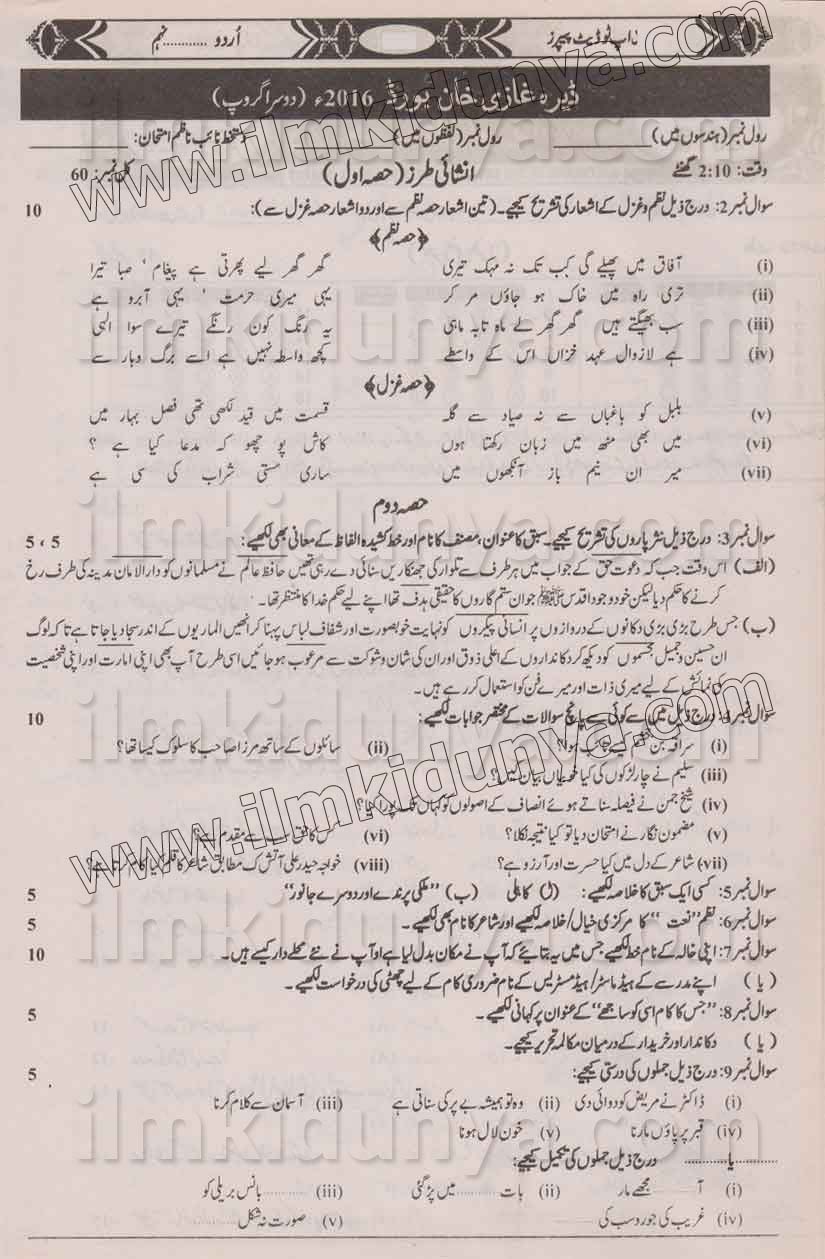 اپ ٹو ڈیٹ پیپرز
اُردو ............ نہم
ڈیرہ غازی خان بورڈ 2016ء (دوسرا گروپ)
رول نمبر (ہندسوں میں) رول نمبر (لفظوں میں) دستخط نائب ناظم امتحان:
وقت: 2:10 گھنٹے انشائی طرز (حصہ اول) کل نمبر: 60
سوال نمبر 2: درج ذیل نظم و غزل کے اشعار کی تشریح کیجیے۔ (تین اشعار حصہ نظم سے اور دو اشعار حصہ غزل سے): 10
﴿حصہ نظم﴾
(i) آفاق میں پھیلے گی کب تک نہ مہک تیری گھر گھر لیے پھرتی ہے پیغام ' صبا تیرا
(ii) تری راہ میں خاک ہو جاؤں مر کر یہی میری حرمت ' یہی آبرو ہے
(iii) سب بھیگتے ہیں گھر گھر لے ماہ تابہ ماہی یہ رنگ کون رنگے تیرے سوا الہی
(iv) ہے لازوال عہد خزاں اس کے واسطے کچھ واسطہ نہیں ہے اسے برگ و بار سے
﴿حصہ غزل﴾
(v) بلبل کو باغباں سے نہ صیاد سے گلہ قسمت میں قید لکھی تھی فصل بہار میں
(vi) میں بھی منھ میں زبان رکھتا ہوں کاش پوچھو کہ مدعا کیا ہے ؟
(vii) میر ان نیم باز آنکھوں میں ساری مستی شراب کی سی ہے
حصہ دوم
سوال نمبر 3: درج ذیل نثر پاروں کی تشریح کیجیے۔ سبق کا عنوان، مصنف کا نام اور خط کشیدہ الفاظ کے معانی بھی لکھیے: 5 ، 5
(الف) اس وقت جب کہ دعوت حق کے جواب میں ہر طرف سے تلوار کی جھنکاریں سنائی دے رہی تھیں حافظ عالم نے مسلمانوں کو دارالامان مدینہ کی طرف رخ
کرنے کا حکم دیا لیکن خود وجود اقدس ﷺ جو ان ستم گاروں کا حقیقی ہدف تھا اپنے لیے حکم خدا کا منتظر تھا۔
(ب) جس طرح بڑی بڑی دکانوں کے دروازوں پر انسانی پیکروں کو نہایت خوبصورت اور شفاف لباس پہنا کر انھیں الماریوں کے اندر سجا دیا جاتا ہے تاکہ لوگ
ان حسین و جمیل مجسموں کو دیکھ کر دکانداروں کے اعلیٰ ذوق اور ان کی شان و شوکت سے مرعوب ہو جائیں اسی طرح آپ بھی اپنی امارت اور اپنی شخصیت
کی نمائش کے لیے میری ذات اور میرے فن کو استعمال کر رہے ہیں۔
سوال نمبر 4: درج ذیل میں سے کوئی سے پانچ سوالات کے مختصر جوابات لکھیے: 10
(i) سراقہ بن کیسے تائب ہوا؟ (ii) سائلوں کے ساتھ مرزا صاحب کا سلوک کیسا تھا؟
(iii) سلیم نے چار لڑکوں کی کیا خوبیاں بیان کیں؟
(iv) شیخ جمن نے فیصلہ سناتے ہوئے انصاف کے اصولوں کو کہاں تک پورا کیا؟
(v) مضمون نگار نے امتحان دیا تو کیا نتیجہ نکلا؟ (vi) کس کا حق سب سے مقدم ہے؟
(vii) شاعر کے دل میں کیا حسرت اور آرزو ہے؟ (viii) خواجہ حیدر علی آتش ک مطابق شاعر کا قلم کیا کام کرتا ہے؟
سوال نمبر 5: کسی ایک سبق کا خلاصہ لکھیے: کاہلی (ب) "ملکی پرندے اور دوسرے جانور" 5
سوال نمبر 6: نظم "نعت" کا مرکزی خیال/خلاصہ لکھیے اور شاعر کا نام بھی لکھیے۔ 5
سوال نمبر 7: اپنی خالہ کے نام خط لکھیے جس میں یہ بتائیے کہ آپ نے مکان بدل لیا ہے او آپ نے نئے محلے دار کیسے ہیں۔ 10
(یا) اپنے مدرسے کے ہیڈ ماسٹر/ہیڈ مسٹریس کے نام ضروری کام کے لیے چھٹی کی درخواست لکھیے۔
سوال نمبر 8: "جس کا کام اسی کو ساجھے" کے عنوان پر کہانی لکھیے۔ 5
(یا) دکاندار اور خریدار کے درمیان مکالمہ تحریر کیجیے۔
سوال نمبر 9: درج ذیل جملوں کی درستی کیجیے: 5
(i) ڈاکٹر نے مریض کو دوائی دی (ii) وہ تو ہمیشہ بے پر کی سناتی ہے (iii) آسمان سے کلام کرنا
(iv) قبر پر پاؤں مارنا (v) خون لال ہونا
............یا............ درج ذیل جملوں کی تکمیل کیجیے:
(i) آ ........ مجھے مار (ii) بات ........ میں پڑ گئی (iii) ........ بانس بریلی کو
(iv) غریب کی جورو سب کی ........ (v) صورت نہ شکل ........
www.ilmkidunya.com
www.ilmkidunya.com
ilmkidunya.com
ilmkidunya.com
ilmkidunya.com
ilmkidunya.com
ilmkidunya.com
ilmkidunya.com